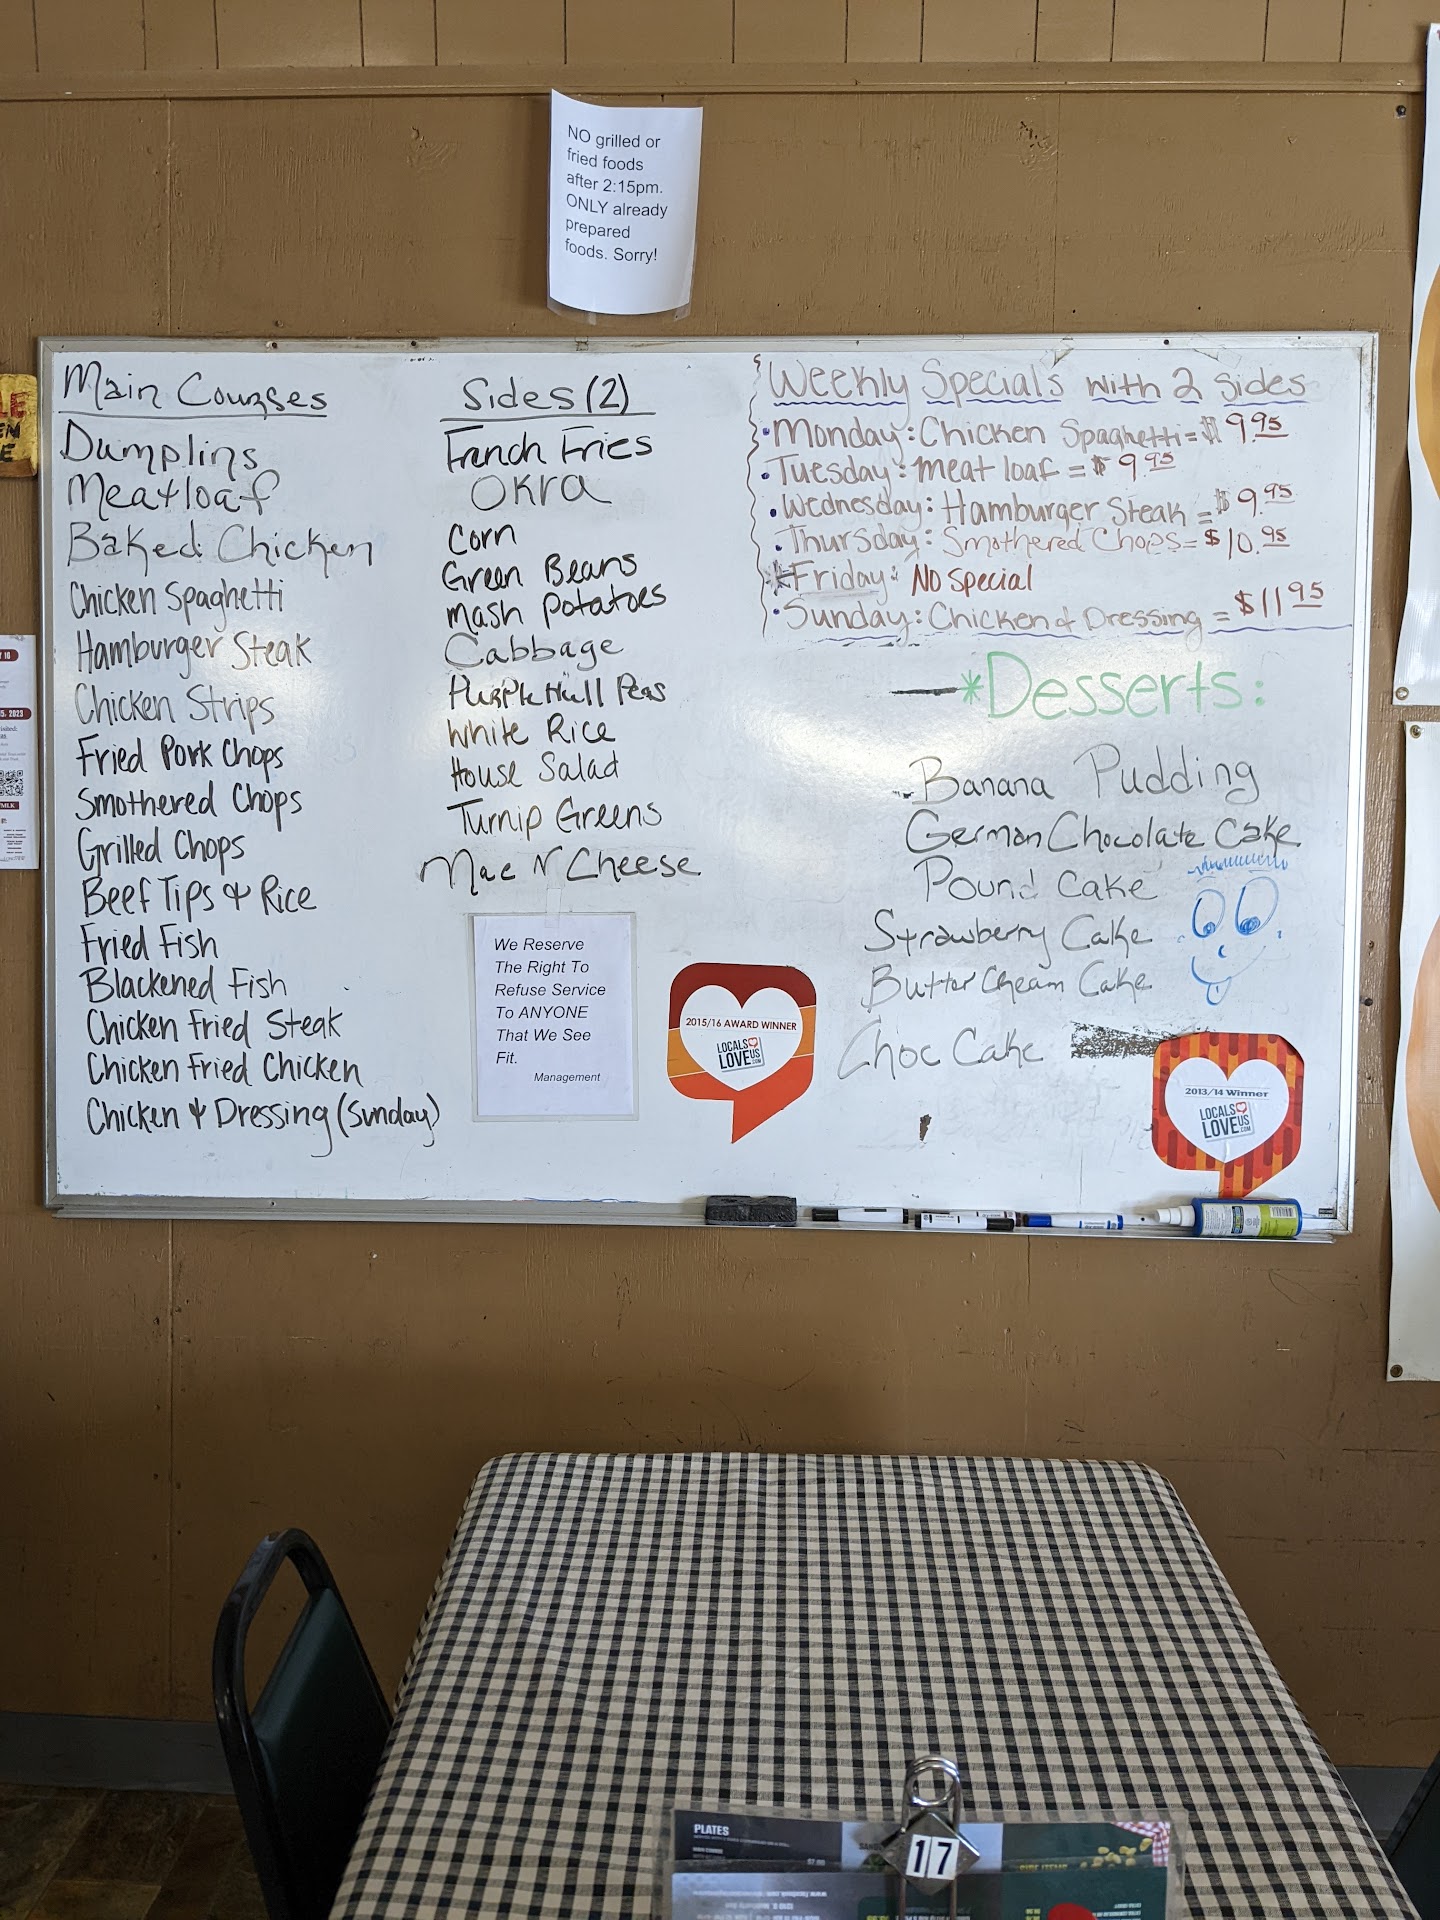 NO grilled or
fried foods
after 2:15pm.
ONLY already
prepared
foods. Sorry!
Main Courses
Dumplins
Meatloaf
Baked Chicken
Chicken Spaghetti
Hamburger Steak
Chicken Strips
Fried Pork Chops
Smothered Chops
Grilled Chops
Beef Tips & Rice
Fried Fish
Blackened Fish
Chicken Fried Steak
Chicken Fried Chicken
Chicken & Dressing (Sunday)
Sides (2)
French Fries
Okra
Corn
Green Beans
Mash Potatoes
Cabbage
Purple Hull Peas
White Rice
House Salad
Turnip Greens
Mac N Cheese
We Reserve
The Right To
Refuse Service
To ANYONE
That We See
Fit.
Management
Weekly Specials with 2 sides
• Monday: Chicken Spaghetti = $9.95
• Tuesday: meat loaf = $9.95
• Wednesday: Hamburger Steak = $9.95
• Thursday: Smothered Chops = $10.95
* Friday: No Special
• Sunday: Chicken & Dressing = $11.95
* Desserts:
Banana Pudding
German Chocolate Cake
Pound Cake
Strawberry Cake
Butter Cream Cake
Choc Cake
2015/16 AWARD WINNER
LOCALS
LOVE US
.COM
2013/14 Winner
LOCALS
LOVE US
.COM
PLATES
17